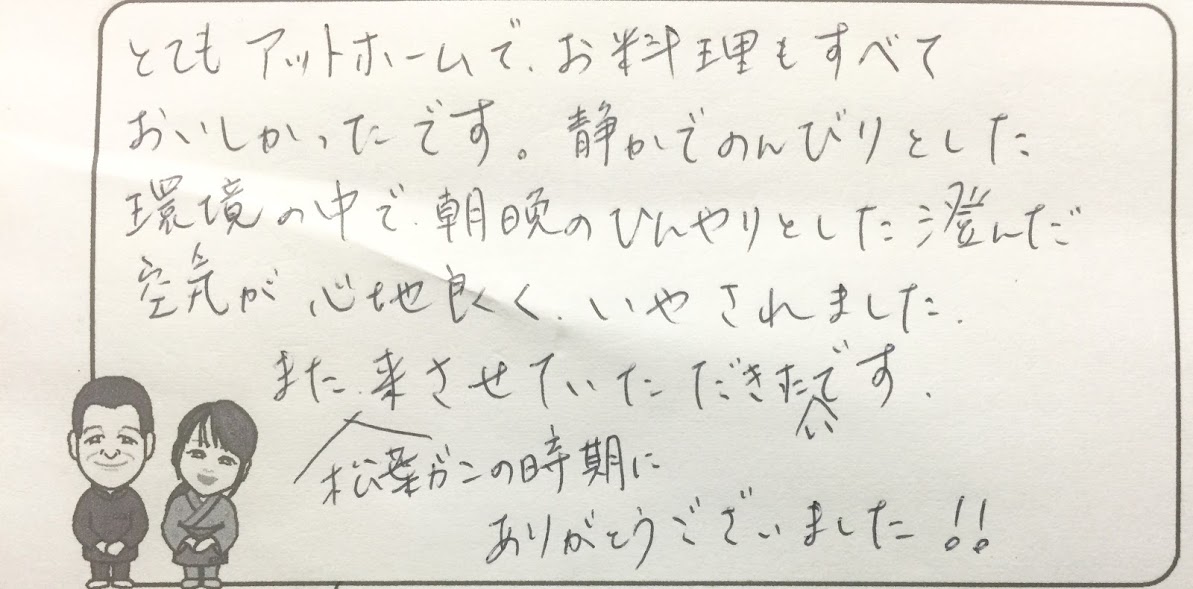 とてもアットホームで、お料理もすべて
おいしかったです。静かでのんびりとした
環境の中で、朝晩のひんやりとした澄んだ
空気が心地良く、いやされました。
また、来させていただきたです。
い
松葉ガニの時期に
ありがとうございました!!